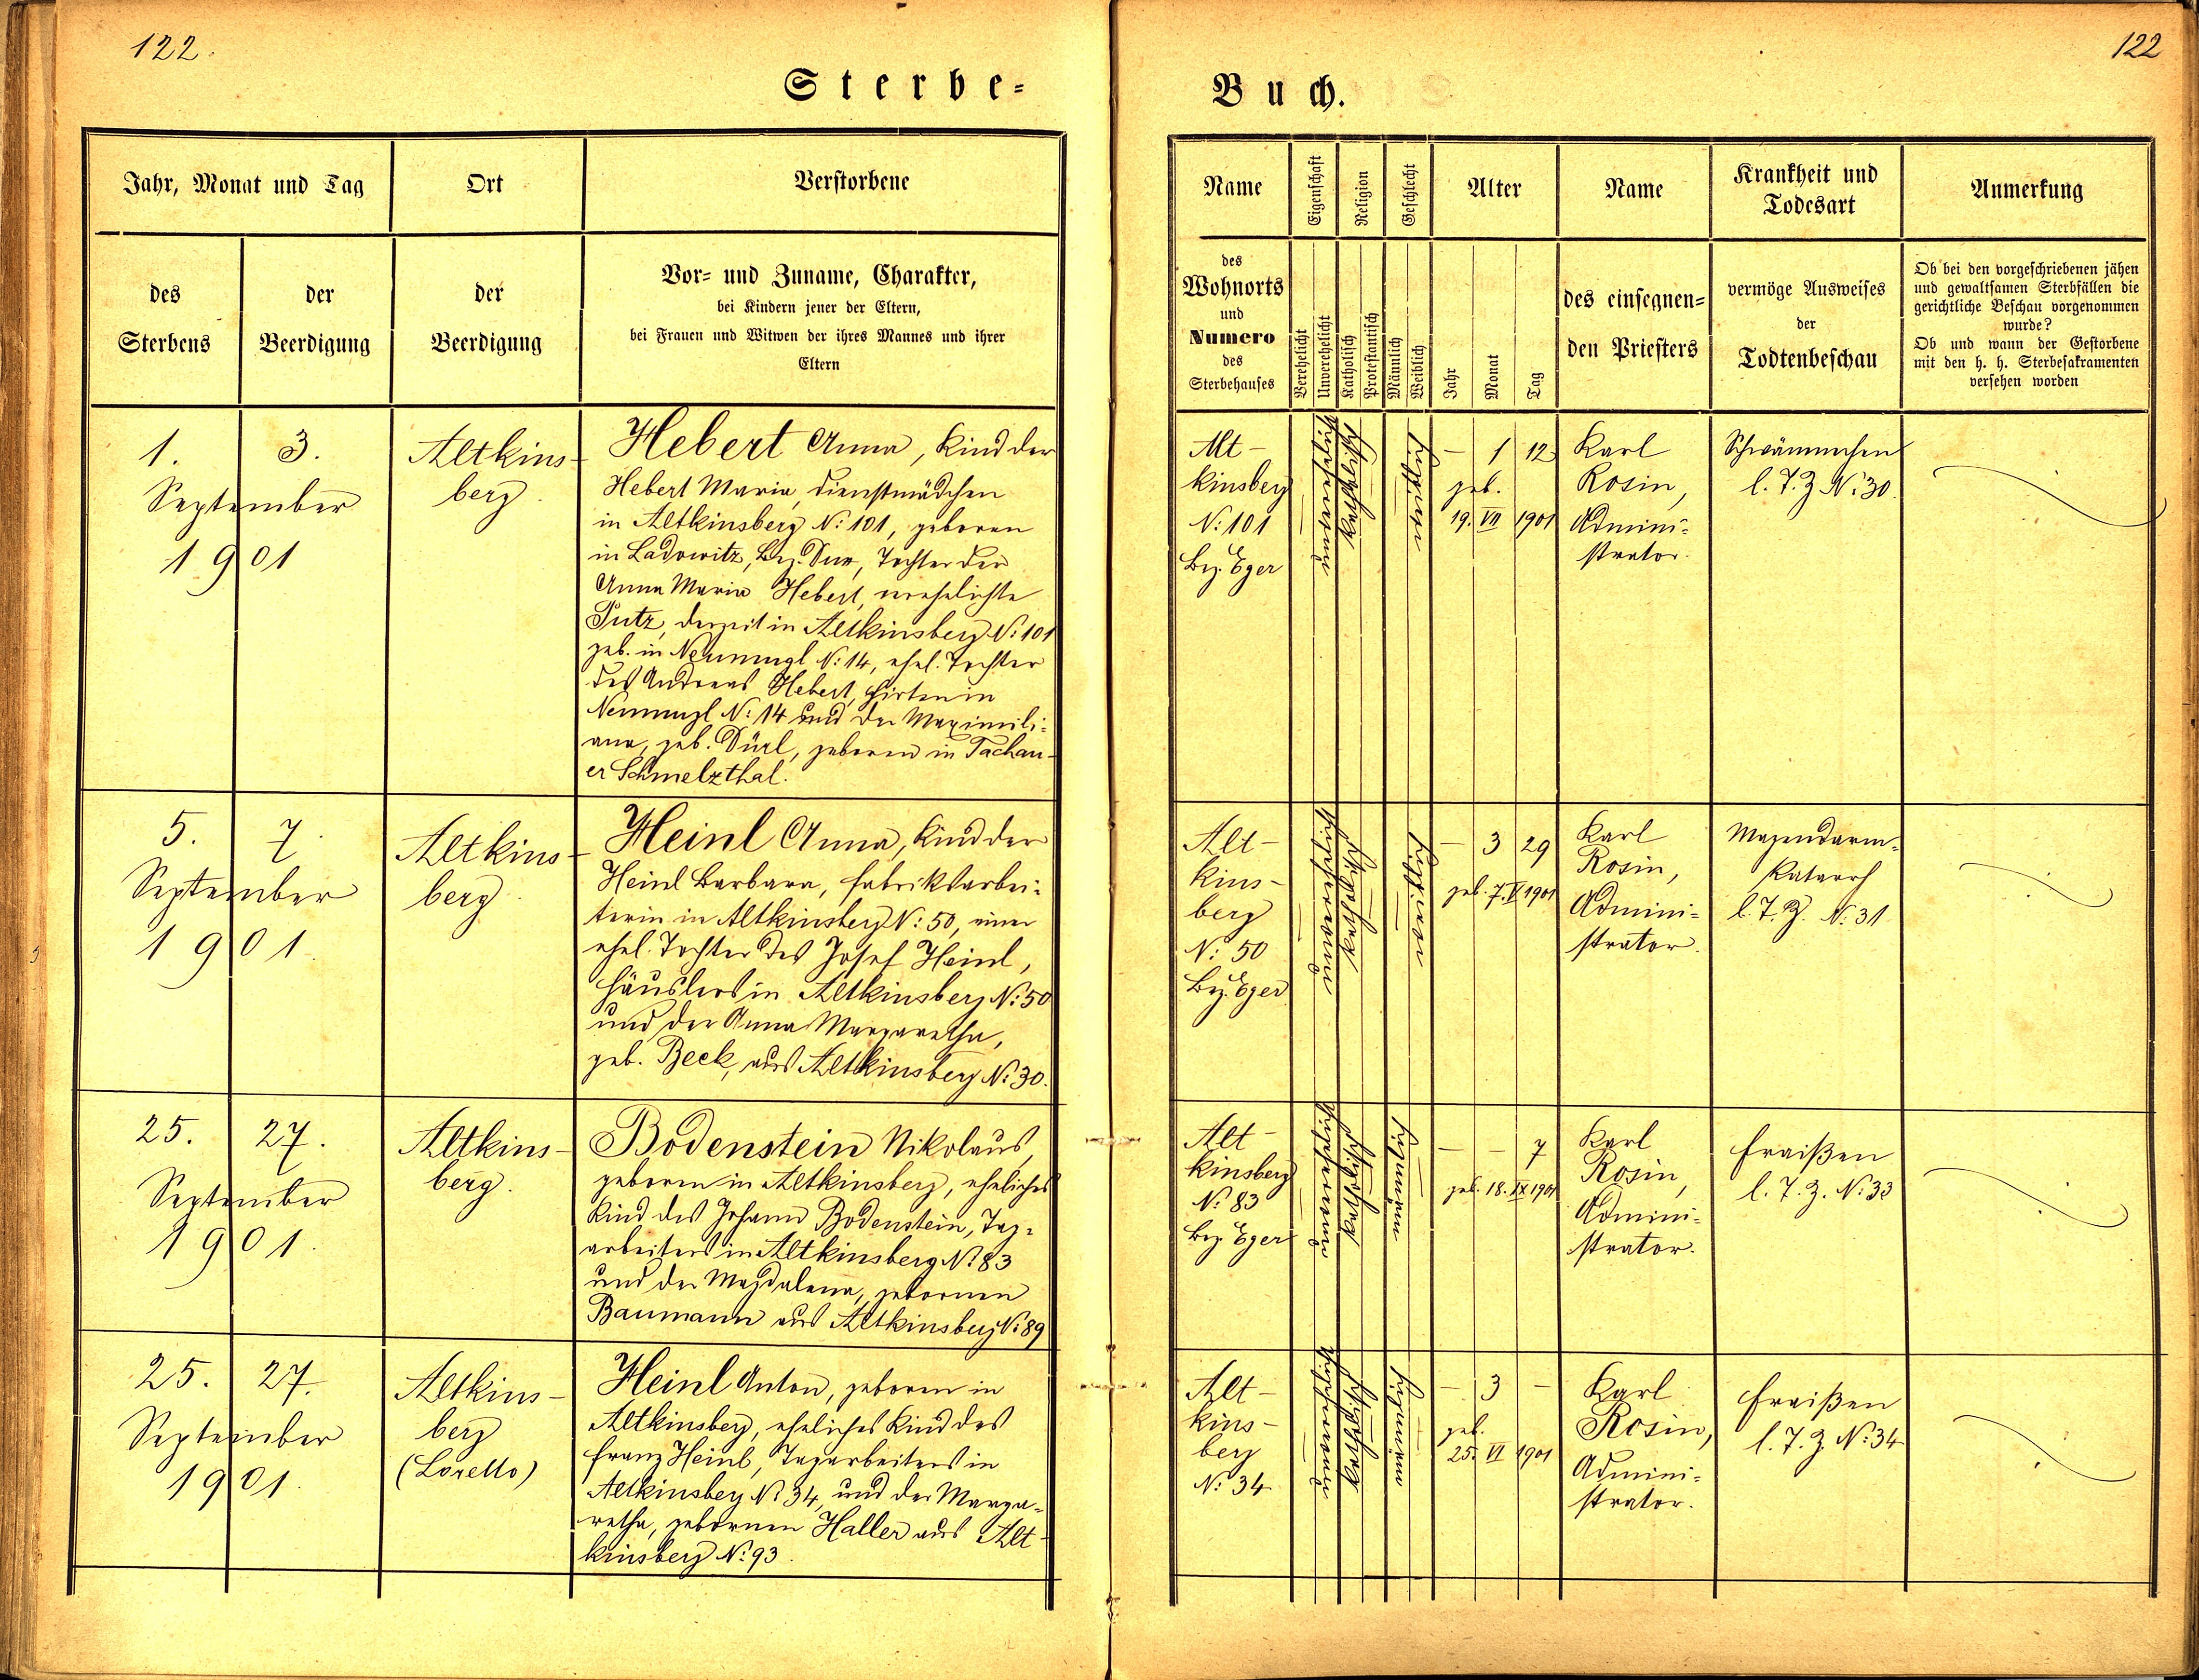 122.
Sterbe-
Jahr, Monat und Tag
Ort
Verstorbene
des
Sterbens
der
Beerdigung
der
Beerdigung
Vor- und Zuname, Charakter,
bei Kindern jener der Eltern,
bei Frauen und Witwen der ihres Mannes und ihrer
Eltern
1.
3.
September
1901
Altkins-
berg.
Hebert Anna, Kind der
Hebert Maria, Dienstmädchen
in Altkinsberg N: 101, geboren
in Ladowitz, Bez. Dux, Tochter der
Anna Maria Hebert, verehelichte
Putz, derzeit in Altkinsberg N: 101
geb. in Neumugl N: 14, ehel. Tochter
des Andreas Hebert, Hirten in
Neumugl N: 14 und der Maximili-
ana, geb. Dürl, geboren in Tachau-
er Schmelzthal.
5.
7.
September
1901.
Altkins-
berg.
Heinl Anna, Kind der
Heinl Barbara, Fabriksarbei-
terin in Altkinsberg N: 50, einer
ehel. Tochter des Josef Heinl,
Häuslers in Altkinsberg N: 50
und der Anna Margaretha,
geb. Beck, aus Altkinsberg N: 30.
25.
27.
September
1901.
Altkins-
berg.
Bodenstein Nikolaus,
geboren in Altkinsberg, eheliches
Kind des Johann Bodenstein, Tag-
arbeiters in Altkinsberg N: 83
und der Magdalena, gebornen
Baumann aus Altkinsberg N: 89
25.
27.
September
1901.
Altkins-
berg
(Loretto)
Heinl Anton, geboren in
Altkinsberg, eheliches Kind des
Franz Heinl, Tagarbeiters in
Altkinsberg N: 34, und der Marga-
retha, gebornen Haller aus Alt-
kinsberg N: 93.
122
Buch.
Name
Eigenschaft
Religion
Geschlecht
Alter
Name
Krankheit und
Todesart
Anmerkung
des
Wohnorts
und
Numero
des
Sterbehauses
Verehelicht
Unverehelicht
Katholisch
Protestantisch
Männlich
Weiblich
Jahr
Monat
Tag
des einsegnen-
den Priesters
vermöge Ausweises
der
Todtenbeschau
Ob bei den vorgeschriebenen jähen
und gewaltsamen Sterbfällen die
gerichtliche Beschau vorgenommen
wurde?
Ob und wann der Gestorbene
mit den h. h. Sterbesakramenten
versehen worden
Alt-
kinsberg
N: 101
Bez. Eger
unverehelicht
katholisch
weiblich
– 1 12
geb.
19. VII 1901
Karl
Rosin,
Admini-
strator.
Schwämmchen
l. T. Z. N: 30.
Alt-
kins-
berg
N: 50
Bez. Eger
unverehelicht
katholisch
weiblich
– 3 29
geb. 7. V 1901
Karl
Rosin,
Admini-
strator.
Magendarm-
katarrh
l. T. Z. N: 31
Alt-
kinsberg
N: 83
Bez. Eger
unverehelicht
katholisch
männlich
– – 7
geb. 18. IX 1901
Karl
Rosin,
Admini-
strator.
Fraißen
l. T. Z. N: 33
Alt-
kins-
berg
N: 34
unverehelicht
katholisch
männlich
– 3 –
geb.
25. VI 1901
Karl
Rosin,
Admini-
strator.
Fraißen
l. T. Z. N: 34